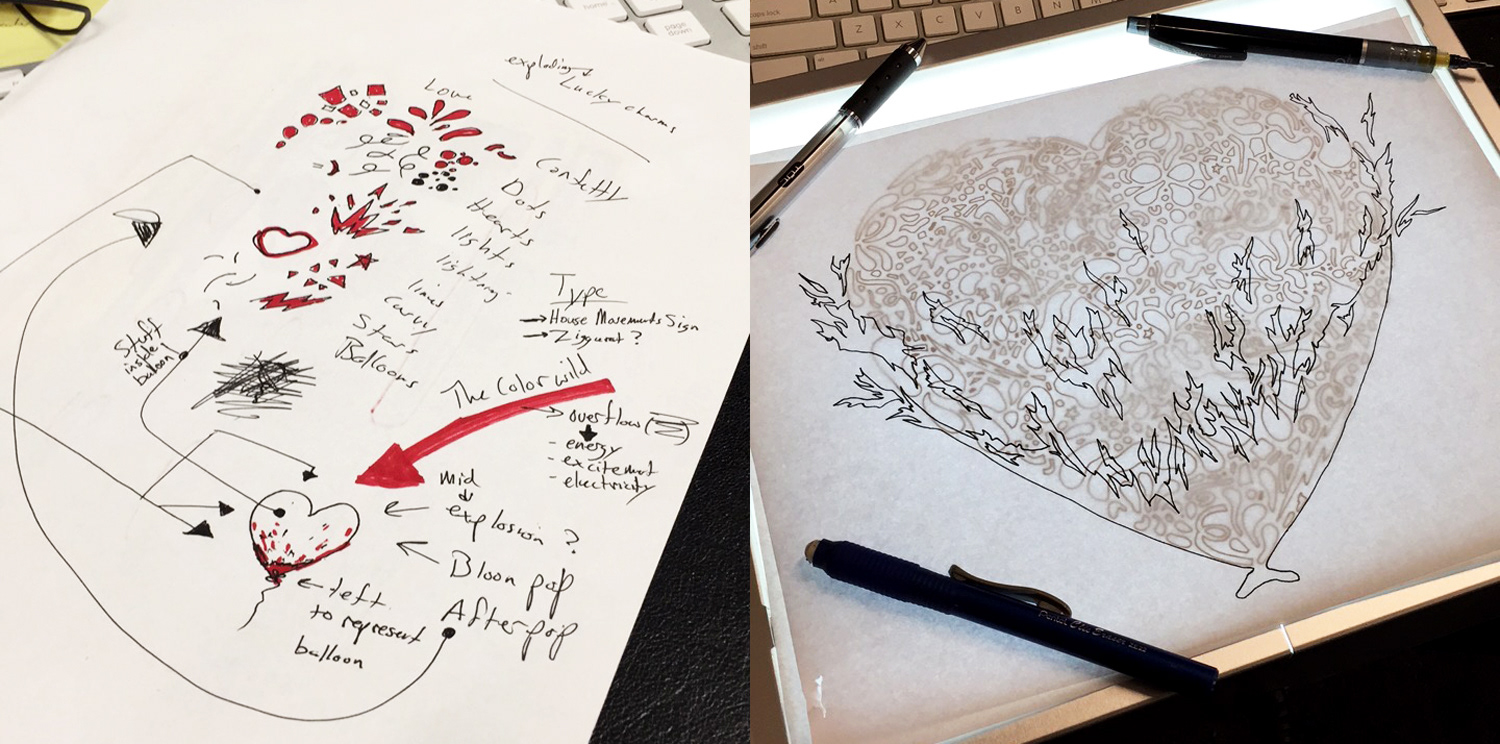 home
page
down
exploding
Lucky charms
Love
Confetty
Dots
hearts
lights
lightning
lines
curvy
Stars
Balloons
Type
House Movements Sign
Ziggurat ?
Stuff
inside
balloon
The Color wild
overflow
- energy
- excitement
- electricity
Mid
explosion ?
Bloon pop
After pop
left
to represent
balloon
caps lock
A
S
D
shift
Z
X
C
V
B
N
M